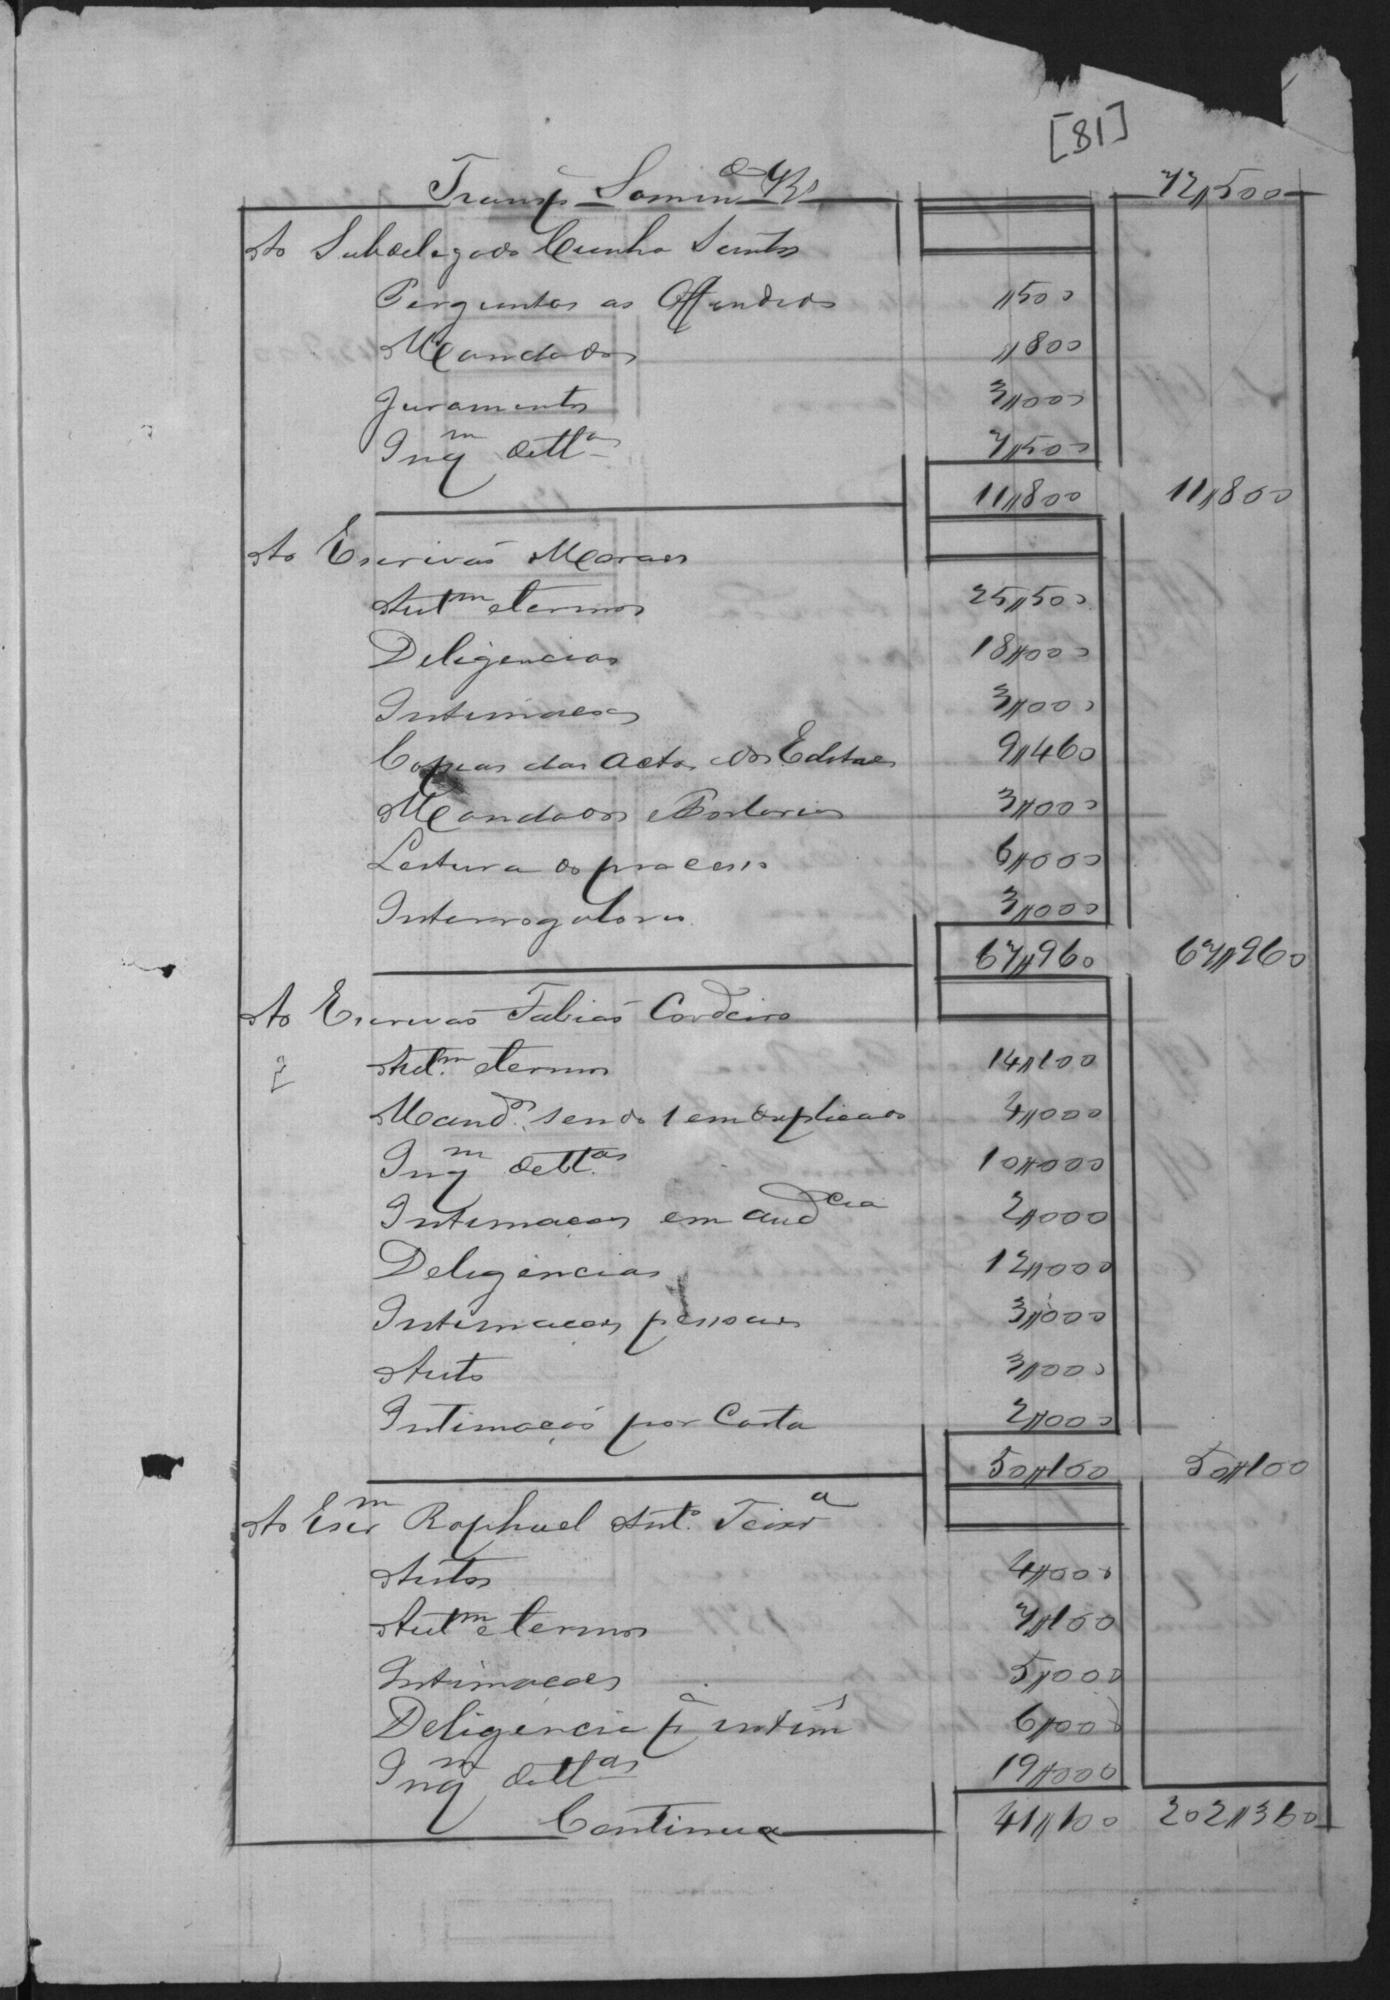 [81]
Transpe Somma Rs 72,,500
Ao Subdelegado Cunha Santos
Perguntas as Offendidos ,,500
Mandados ,,800
Juramentos 3,,000
Inqm de ttas 7,,500
11,,800 11,,800
Ao Escrivaõ Moraes
Autm e termos 25,,500
Deligencias 18,,000
Intimações 3,,000
Copias das actas dos Editaes 9,,460
Mandados e Portarias 3,,000
Leitura do processo 6,,000
Interrogatorios 3,,000
67,,960 67,,960
Ao Escrivaõ Fabiaõ Cordeiro
Autm e termos 14,,100
Mandos sendo 1 em duplicado 4,,000
Inqm de ttas 10,,000
Intimações em audcia 2,,000
Deligencias 12,,000
Intimações pessoaes 3,,000
Auto 3,,000
Intimaçaõ por Carta 2,,000
50,,100 50,,100
Ao Escrm Raphael Anto Teixra
Autos 4,,000
Autm e termos 7,,100
Intimações 5,,000
Deligencia pa intims 6,,000
Inqm de ttas 19,,000
Continua 41,,100 202,,360